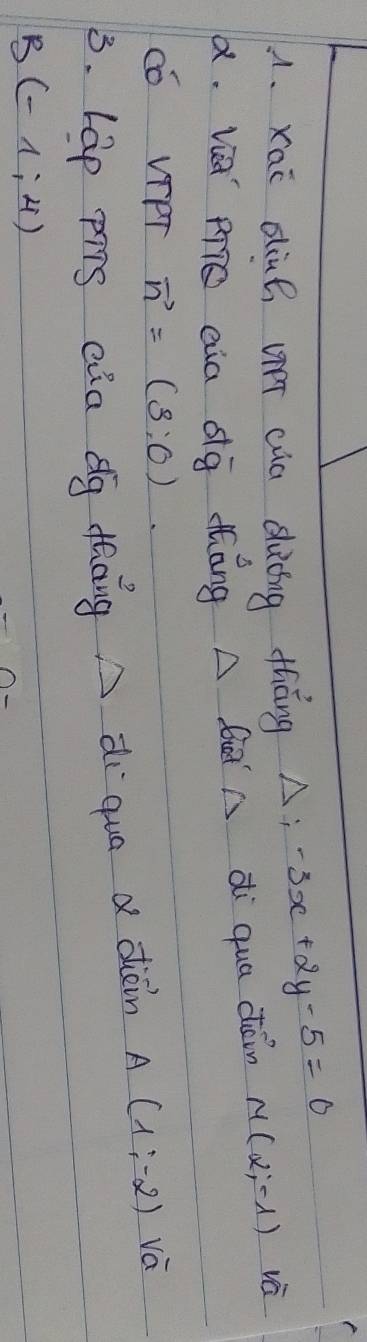 1. Xác định VTPT của đường thẳng Δ: -3x + 2y - 5 = 0
2. Viết PTTQ của đg thẳng Δ biết Δ đi qua điểm M(2;-1) và
có VTPT n⃗ = (3;0).
3. Lập PTTS của đg thẳng Δ đi qua 2 điểm A(1;-2) và
B(-1;4)